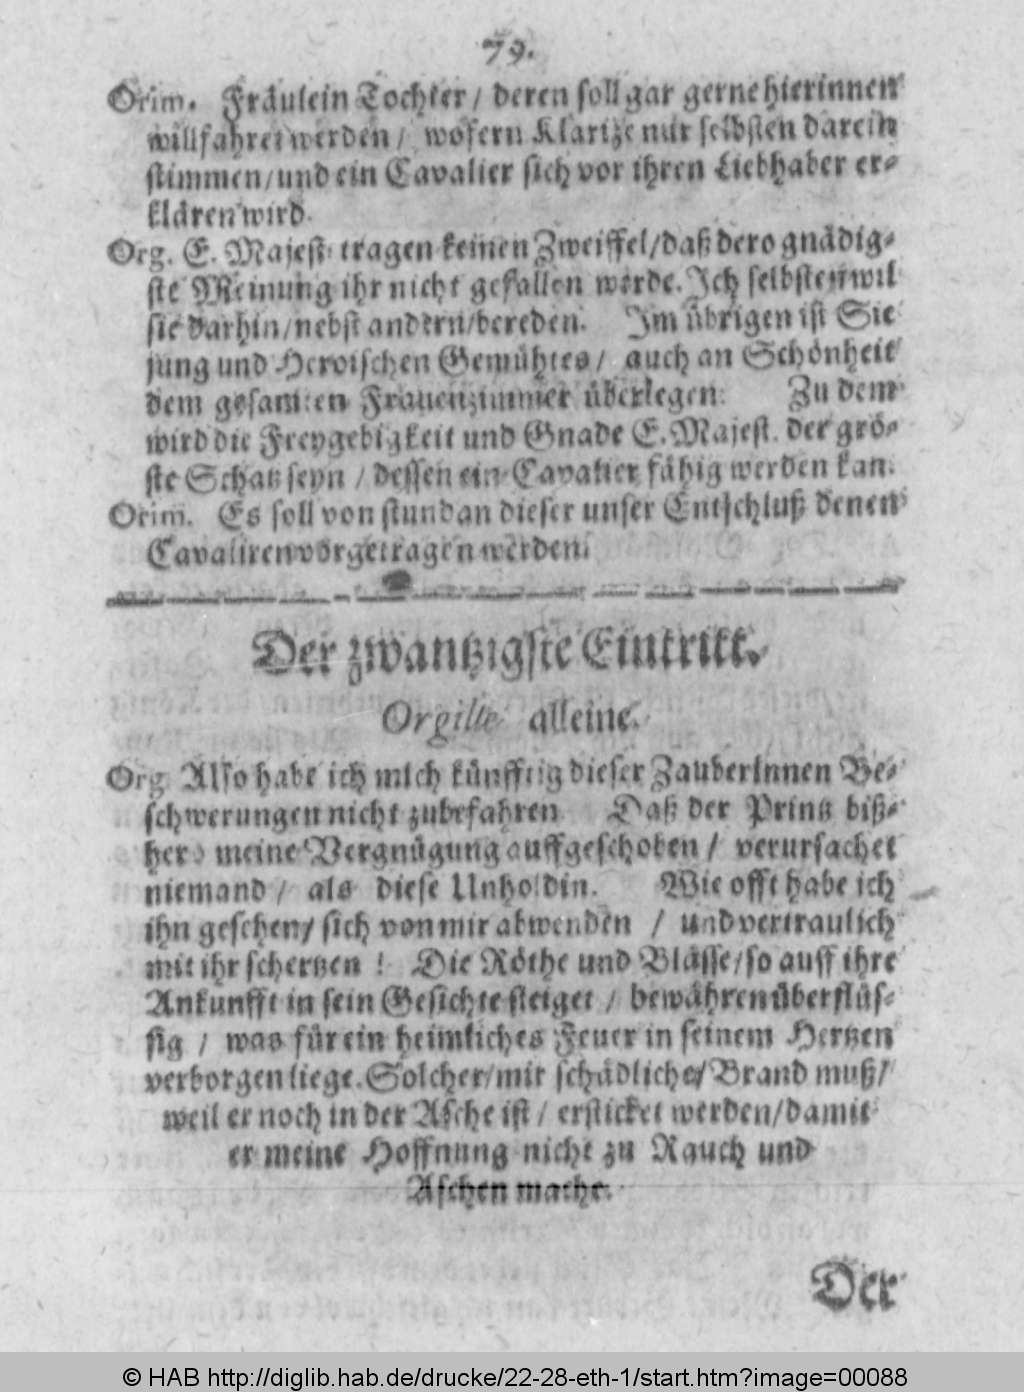 79.
Orim. Fräulein Tochter / deren soll gar gerne hierinnen
willfahret werden / wofern Klaritze nur selbsten darein
stimmen / und ein Cavalier sich vor ihren Liebhaber er-
klären wird.
Org. E. Majest. tragen keinen Zweiffel / daß dero gnädig-
ste Meinung ihr nicht gefallen werde. Ich selbsten wil
sie darhin / nebst andern / bereden. Im übrigen ist Sie
jung und Heroischen Gemühtes / auch an Schönheit
dem gesamten Frauenzimmer überlegen. Zu dem
wird die Freygebigkeit und Gnade E. Majest. der grö-
ste Schatz seyn / dessen ein Cavalier fähig werden kan.
Orim. Es soll von stund an dieser unser Entschluß denen
Cavaliren vorgetragen werden.
Der zwantzigste Eintritt.
Orgille alleine.
Org. Also habe ich mich künfftig dieser Zauberinnen Be-
schwerungen nicht zubefahren. Daß der Printz biß-
her meine Vergnügung auffgeschoben / verursachet
niemand / als diese Unholdin. Wie offt habe ich
ihn gesehen / sich von mir abwenden / und vertraulich
mit ihr schertzen! Die Röthe und Blässe / so auff ihre
Ankunfft in sein Gesichte steiget / bewähren überflüs-
sig / was für ein heimliches Feuer in seinem Hertzen
verborgen liege. Solcher / mir schädlicher / Brand muß /
weil er noch in der Asche ist / ersticket werden / damit
er meine Hoffnung nicht zu Rauch und
Aschen mache.
Der
© HAB http://diglib.hab.de/drucke/22-28-eth-1/start.htm?image=00088